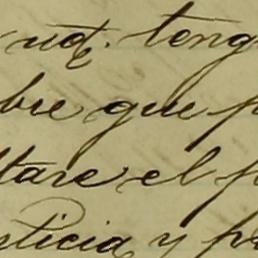 ud. teng
bre que p
tare el p
sticia y pr